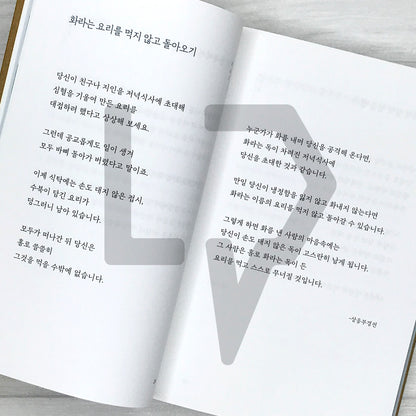 화라는 요리를 먹지 않고 돌아오기
당신이 친구나 지인을 저녁식사에 초대해
심혈을 기울여 만든 요리를
대접하려 했다고 상상해 보세요.
그런데 공교롭게도 일이 생겨
모두 바삐 돌아가 버렸다고 말이죠.
이제 식탁에는 손도 대지 않은 접시,
수북이 담긴 요리가
덩그러니 남아 있습니다.
모두가 떠나간 뒤 당신은
홀로 쓸쓸히
그것을 먹을 수밖에 없습니다.
누군가가 화를 내며 당신을 공격해 온다면,
화라는 독이 차려진 저녁식사에
당신을 초대한 것과 같습니다.
만일 당신이 냉정함을 잃지 않고 화내지 않는다면
화라는 이름의 요리를 먹지 않고 돌아갈 수 있습니다.
그렇게 하면 화를 낸 사람의 마음속에는
당신이 손도 대지 않은 독이 고스란히 남게 됩니다.
그 사람은 홀로 화라는 독이 든
요리를 먹고 스스로 무너질 것입니다.
-상응부경전